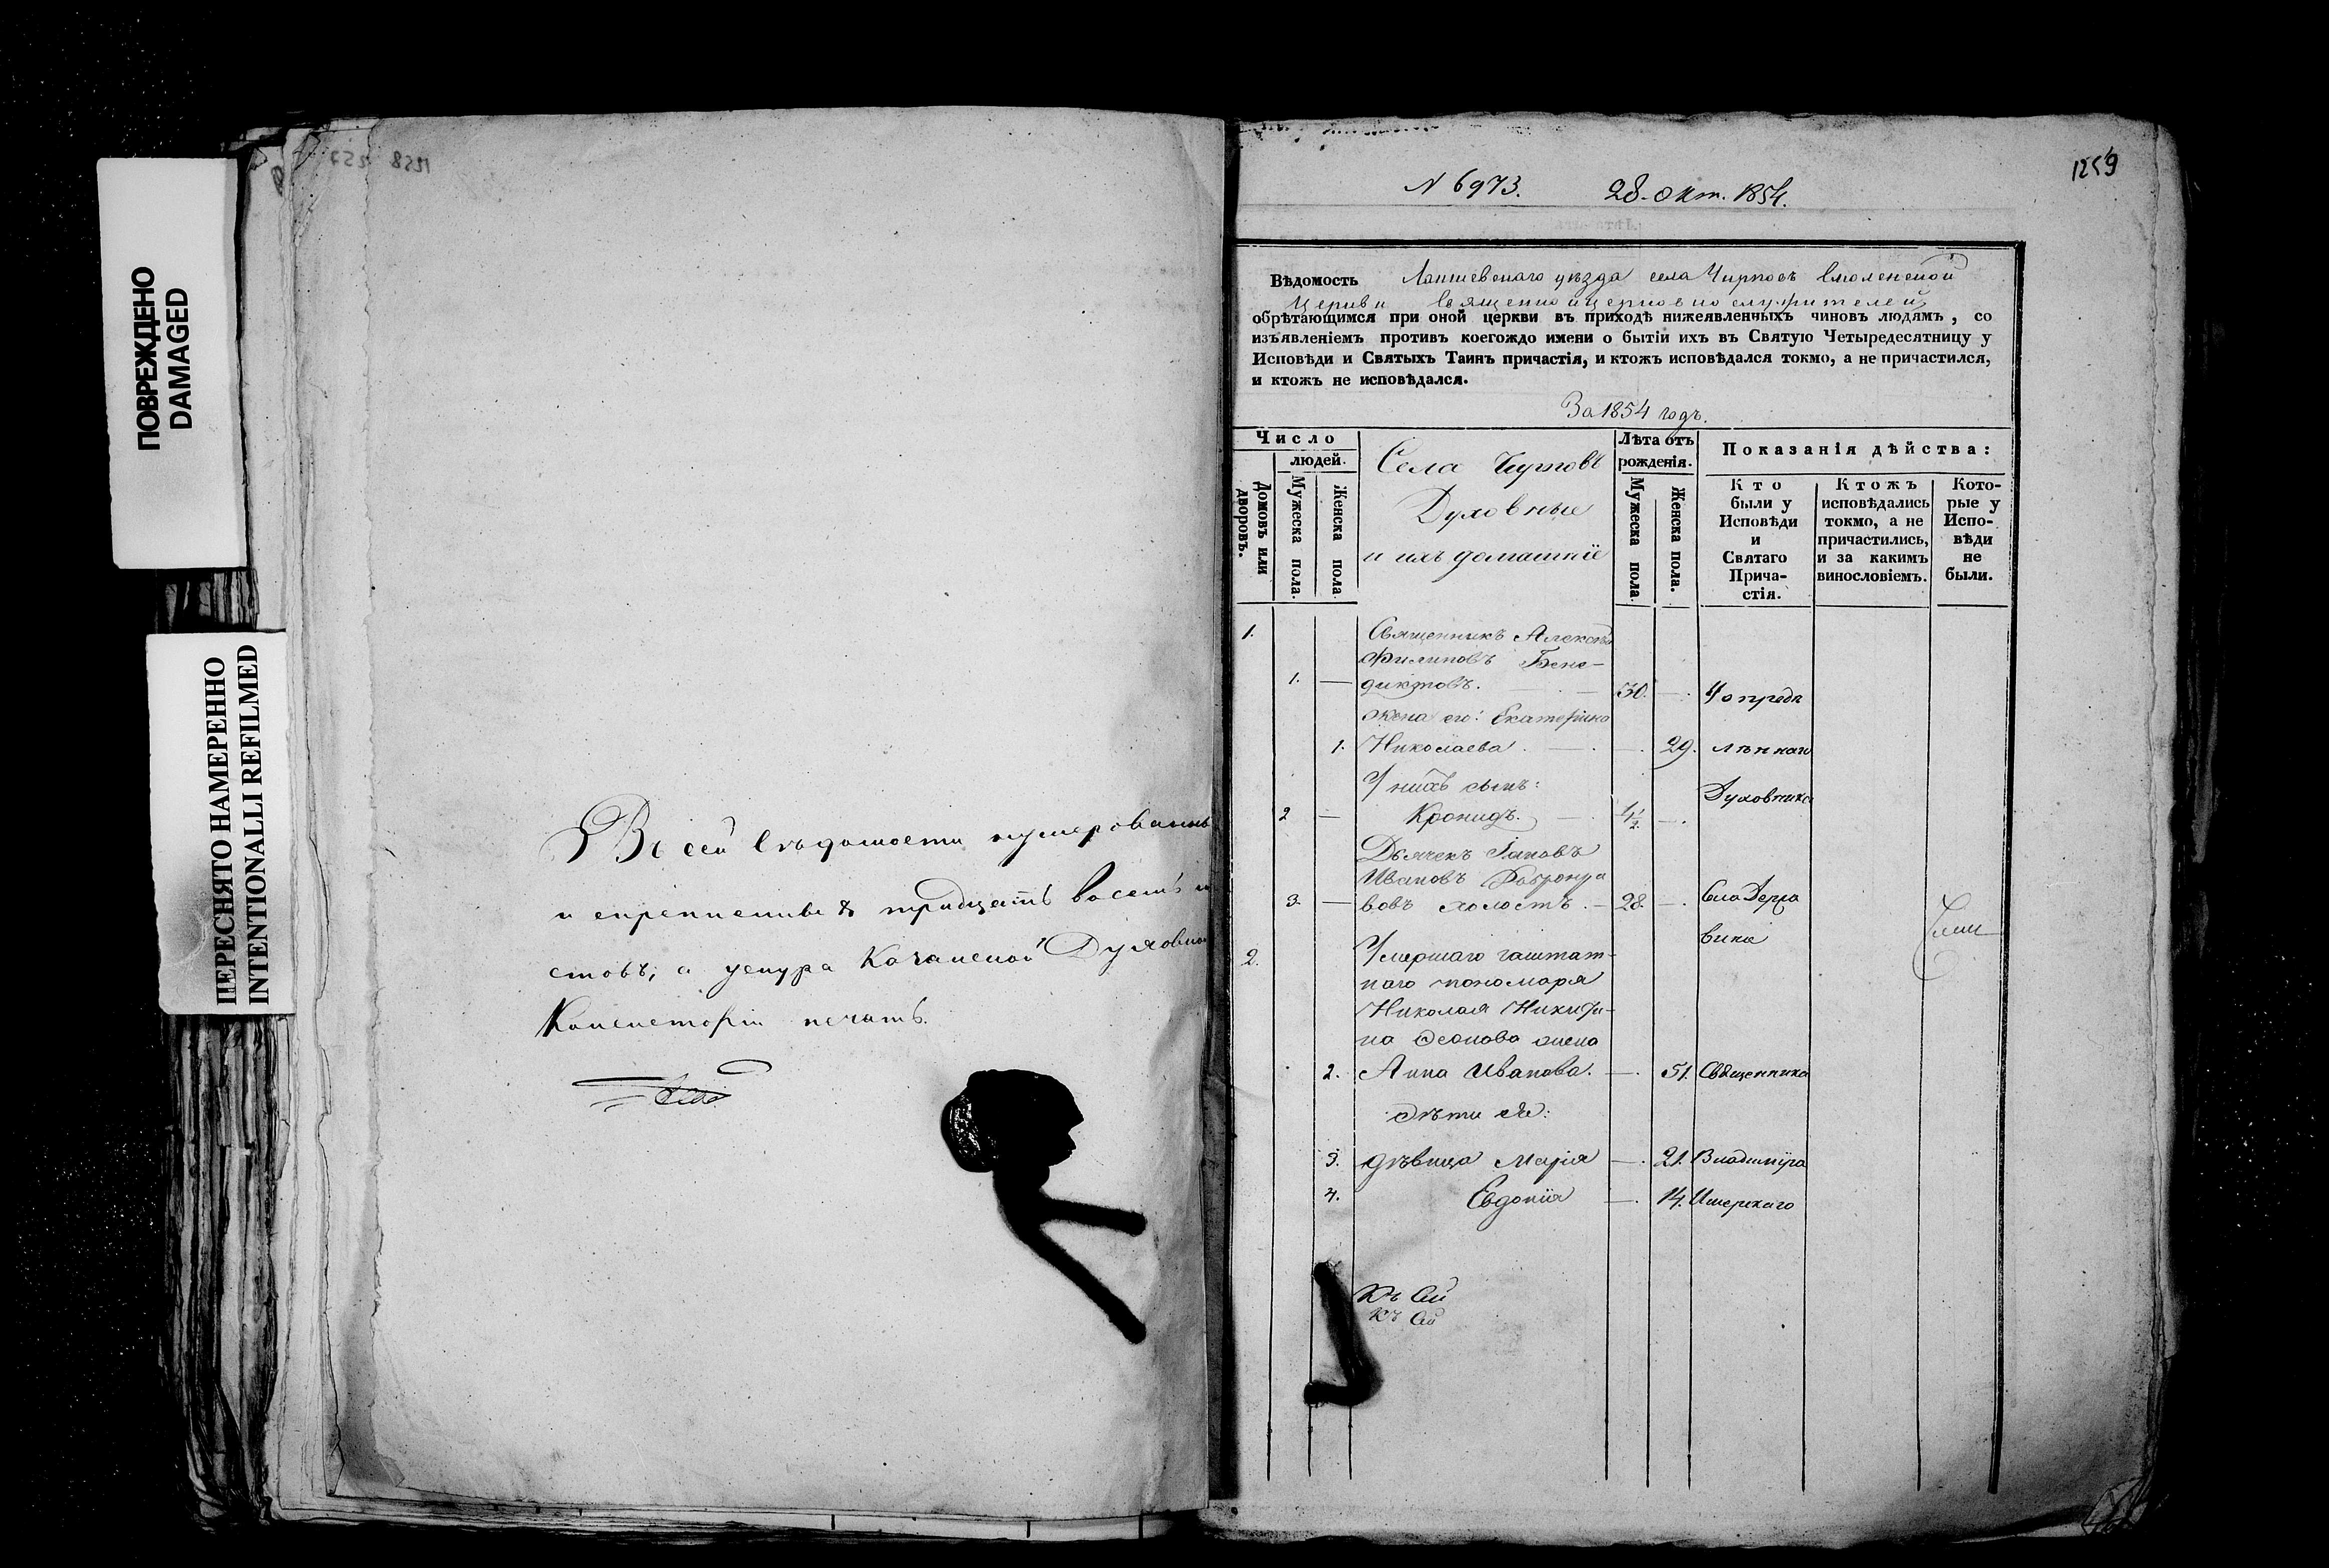 ПОВРЕЖДЕНО
DAMAGED
ПЕРЕСНЯТО НАМЕРЕННО
INTENTIONALLI REFILMED
1258
Въ сей вѣдомости нумерованныхъ
и скрепленныхъ тридцать восемь
стовъ, а у снура Казанской Духовной
Консисторіи печать.
1259
N 6973. 28. Окт. 1854.
Вѣдомость Лаишевскаго уѣзда села Чирповъ Смоленской
Церкви Священно и церковно служителей
обрѣтающимся при оной церкви въ приходѣ нижеявленныхъ чиновъ людямъ, со
изъявленіемъ противъ коегождо имени о бытіи ихъ въ Святую Четыредесятницу у
Исповѣди и Святыхъ Таинъ причастія, и ктожъ исповѣдался токмо, а не причастился,
и ктожъ не исповѣдался.
За 1854 годъ.
Число
людей.
Домовъ или дворовъ.
Мужеска пола.
Женска пола
Села Чирповъ
Духовные
и ихъ домашніе
Лѣта отъ
рожденія.
Мужеска пола
Женска пола.
Показанія дѣйства:
Кто
были у
Исповѣди
и
Святаго
Прича-
стія.
Ктожъ
исповѣдались
токмо, а не
причастились,
и за какимъ
винословіемъ.
Кото-
рые у
Испо-
вѣди
не
были.
1. Священникъ Александръ
Филиповъ Бене-
1. — диктовъ. — 30. —
жена его: Екатерина
1. Николаева. — 29.
У нихъ сынъ:
2 — Кронидъ. — 4½. —
Дьячекъ
Ивановъ
3. — вовъ холостъ. — 28. —
2. Умершаго заштат-
наго пономаря
Николая
жена
2. Анна Иванова. — 51. Священника
дѣти ея:
3. дѣвица Марія — 21. Владиміра
4. Евдокія — 14.
У опредѣ
леннаго
Духовника